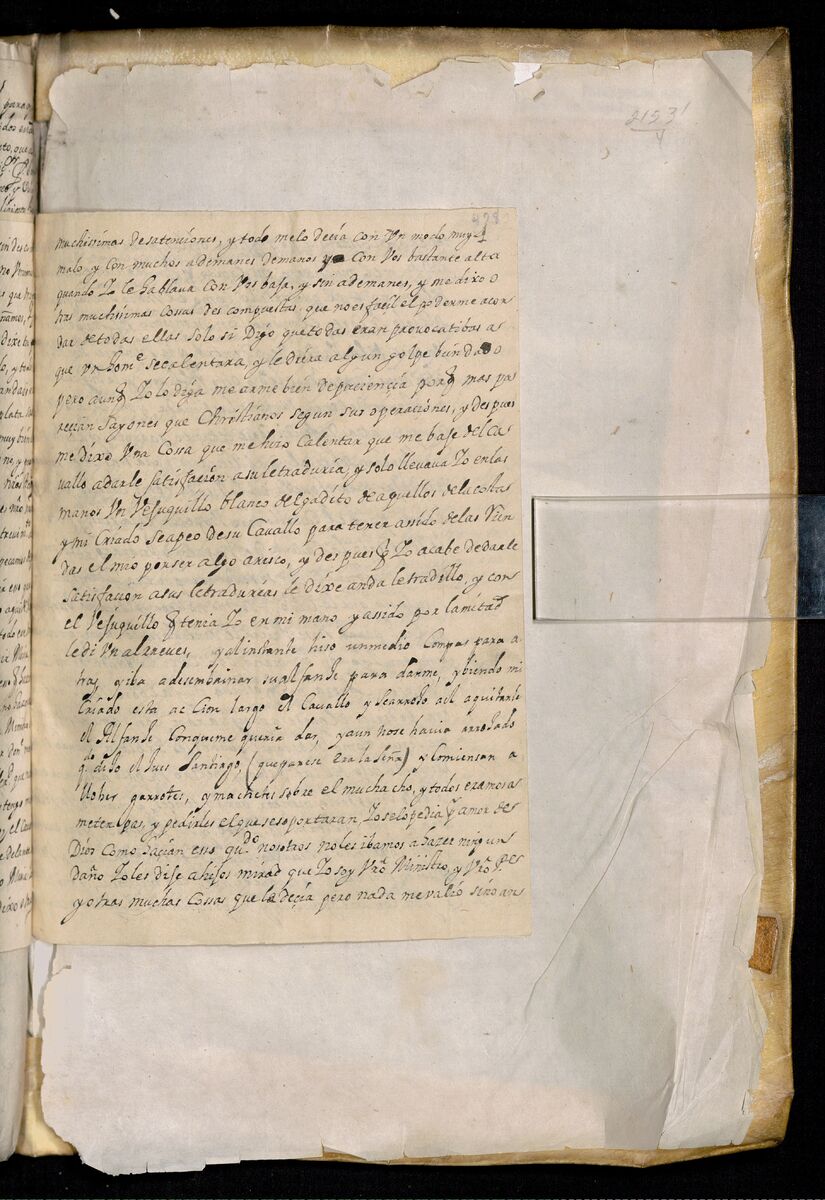 2153
4
428
muchissimas desatenciones, y todo melo decia con Vn modo muy
malo, y con muchos ademanes demanos y con Vos bastante alta
quando Yo le hablava con Vos baja, y sin ademanes, y me dixo o
tras muchissimas cossas descompuestas, que no es facil el poderme acor
dar de todas ellas solo si Digo que todas eran provocatibas a
que vn homͤ se calentara, y le diera algun golpe bien dado
pero aunq̃ Yo lo dija me arme bien de paciençia porq̃ mas pa
reçian sayones que Christianos segun sus operaciones, y despues
me dixo Vna Cossa que me hizo Calentar que me baje del Ca
vallo a darle satisfacion asu letraduria, y solo llevava Yo en las
manos Vn Vejuquillo blanco delgadito de aquellos dela costa
y mi Criado se apeo de su Cavallo para tener assido de las Rien
das el mio por ser algo arisco, y despues q̃ Yo acabe de darle
satisfacion asus letradureas le dixe anda letradillo, y con
el Vejuquillo q̃ tenia Yo en mi mano y assido por la mitad
le di Vn alreves, y al instante hiso un medio Compas para a
tras, y iba a desembainar su alfanje para darme, y biendo mi
Criado esta accion largo el Cavallo y se arrojo a el a quitarle
el Alfanje Conque me queria dar, y aun no se havia arrojado
qdo dijo el Jues Santiago, (que parese era la señ̃a) y Comiensan a
llober garrotes, y machetes sobre el muchacho, y todos eramos a
meter pas, y pedirles el que se soportaran, Yo se lo pedia pͬ amor de
Dios como hacian esso, qudͦ nosotros no les ibamos a hazer ningun
daño Yo les dije a hijos mirad que Yo soy Vrõ Ministro, y Vrõ Pͤ
y otras muchas Cossas que les deçia pero nada me valio sino an